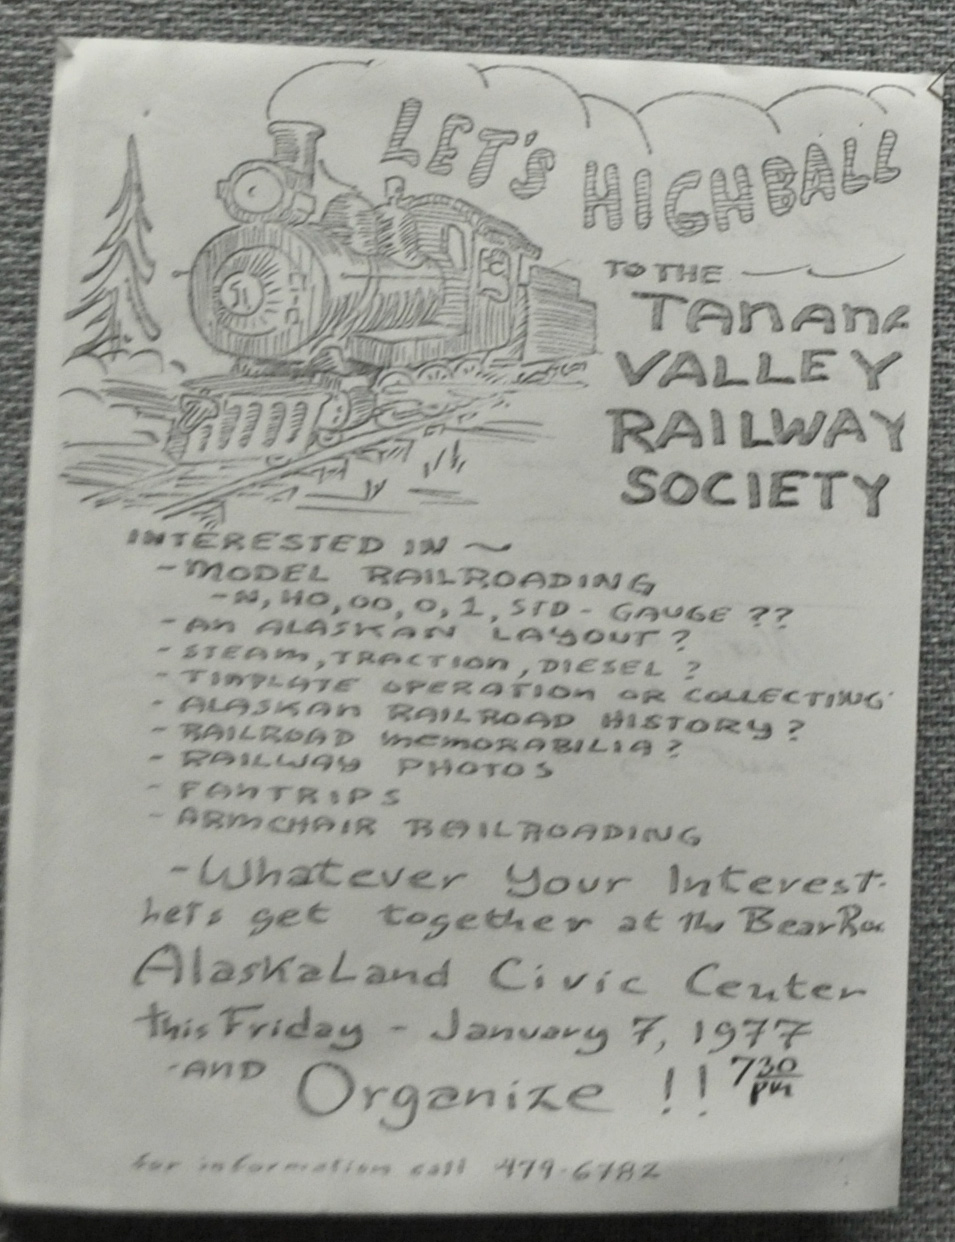 LET'S HIGHBALL
TO THE
TANANA
VALLEY
RAILWAY
SOCIETY
51
INTERESTED IN ~
- MODEL RAILROADING
- N, HO, OO, O, 1, STD - GAUGE ??
- AN ALASKAN LAYOUT ?
- STEAM, TRACTION, DIESEL ?
- TINPLATE OPERATION OR COLLECTING
- ALASKAN RAILROAD HISTORY ?
- RAILROAD MEMORABILIA ?
- RAILWAY PHOTOS
- FANTRIPS
- ARMCHAIR RAILROADING
- Whatever Your Interest.
Let's get together at the Bear
AlaskaLand Civic Center
this Friday - January 7, 1977
- AND Organize !! 7 30 pm
for information call 479-6782